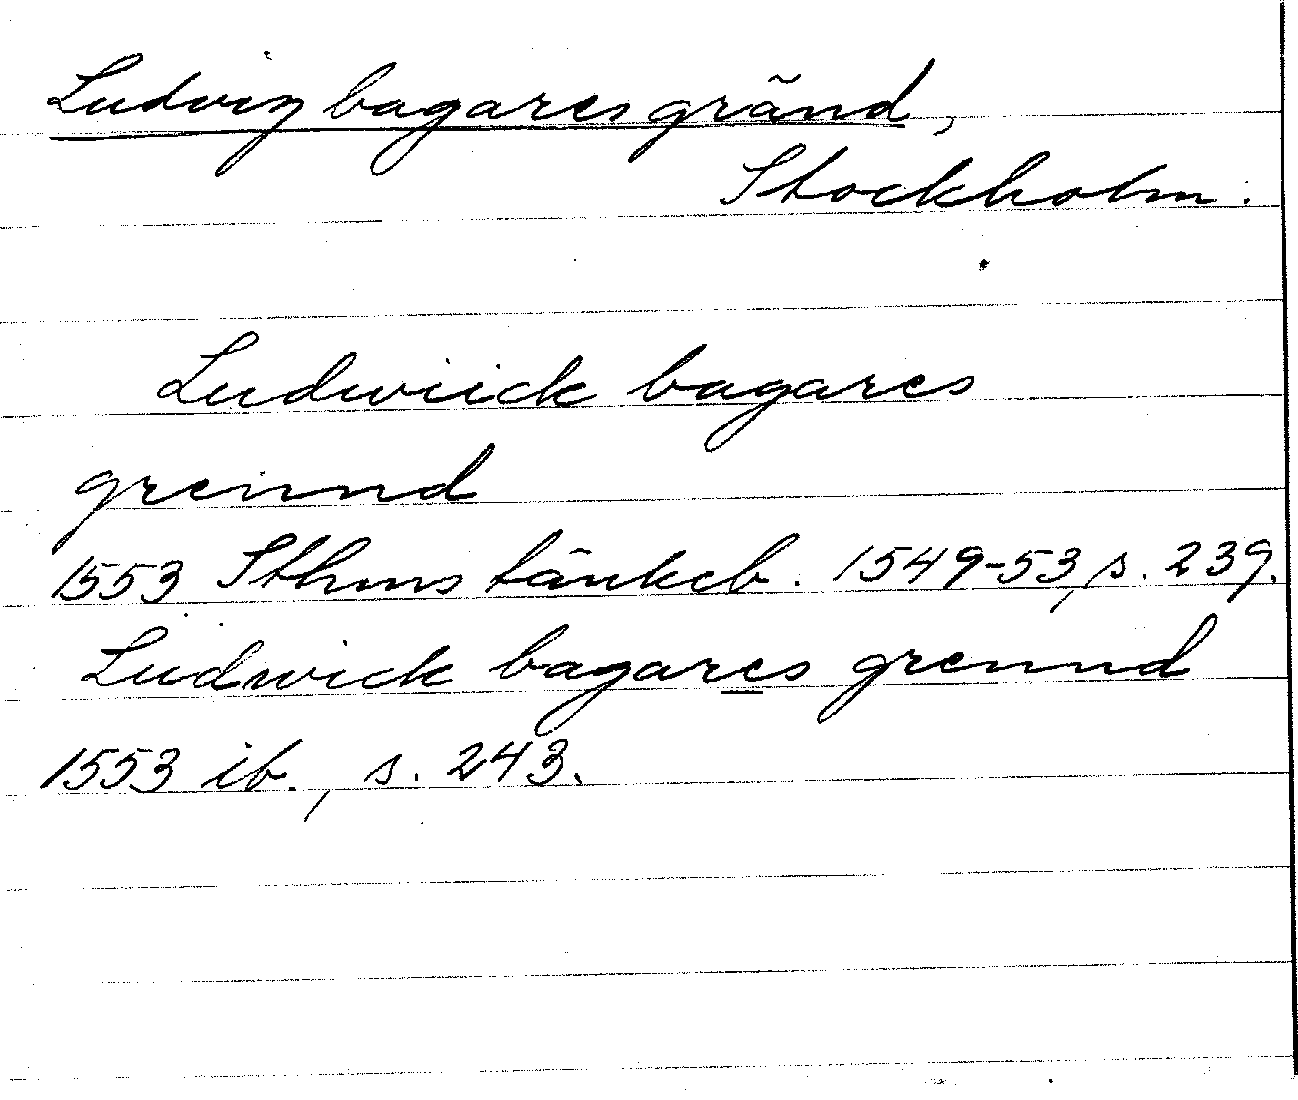 Ludvig bagares gränd,
Stockholm.
Ludwiick bagares
grennd
1553 Sthms tänkeb. 1549-53, s. 239.
Ludwick bagares grennd
1553 ib., s. 243.